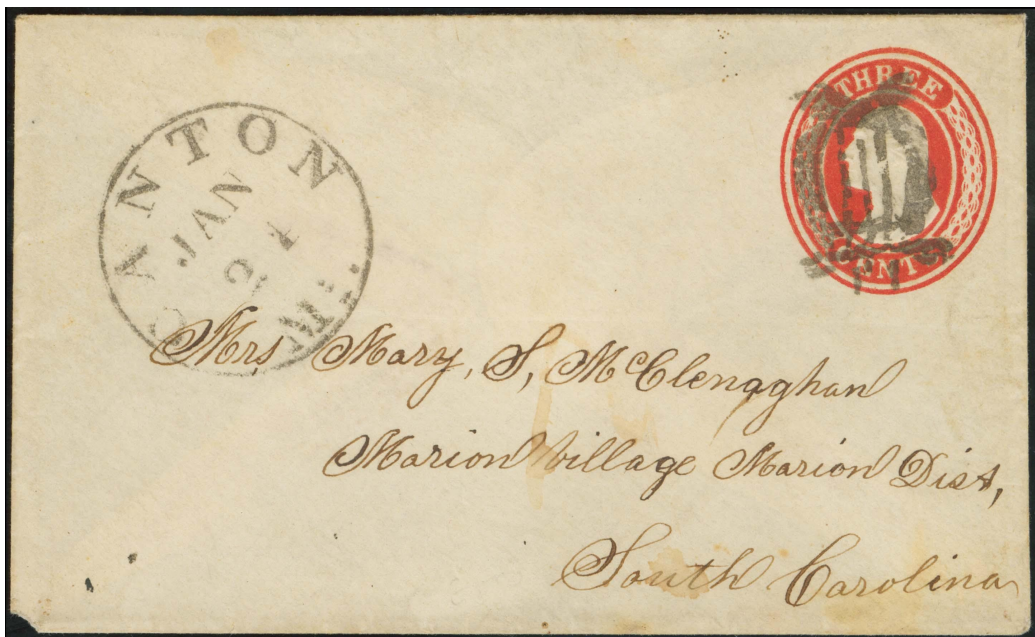 CANTON
JAN
21
Mi:
THREE
CENTS
Mrs Mary, S, McClenaghan
Marion Village Marion Dist,
South Carolina